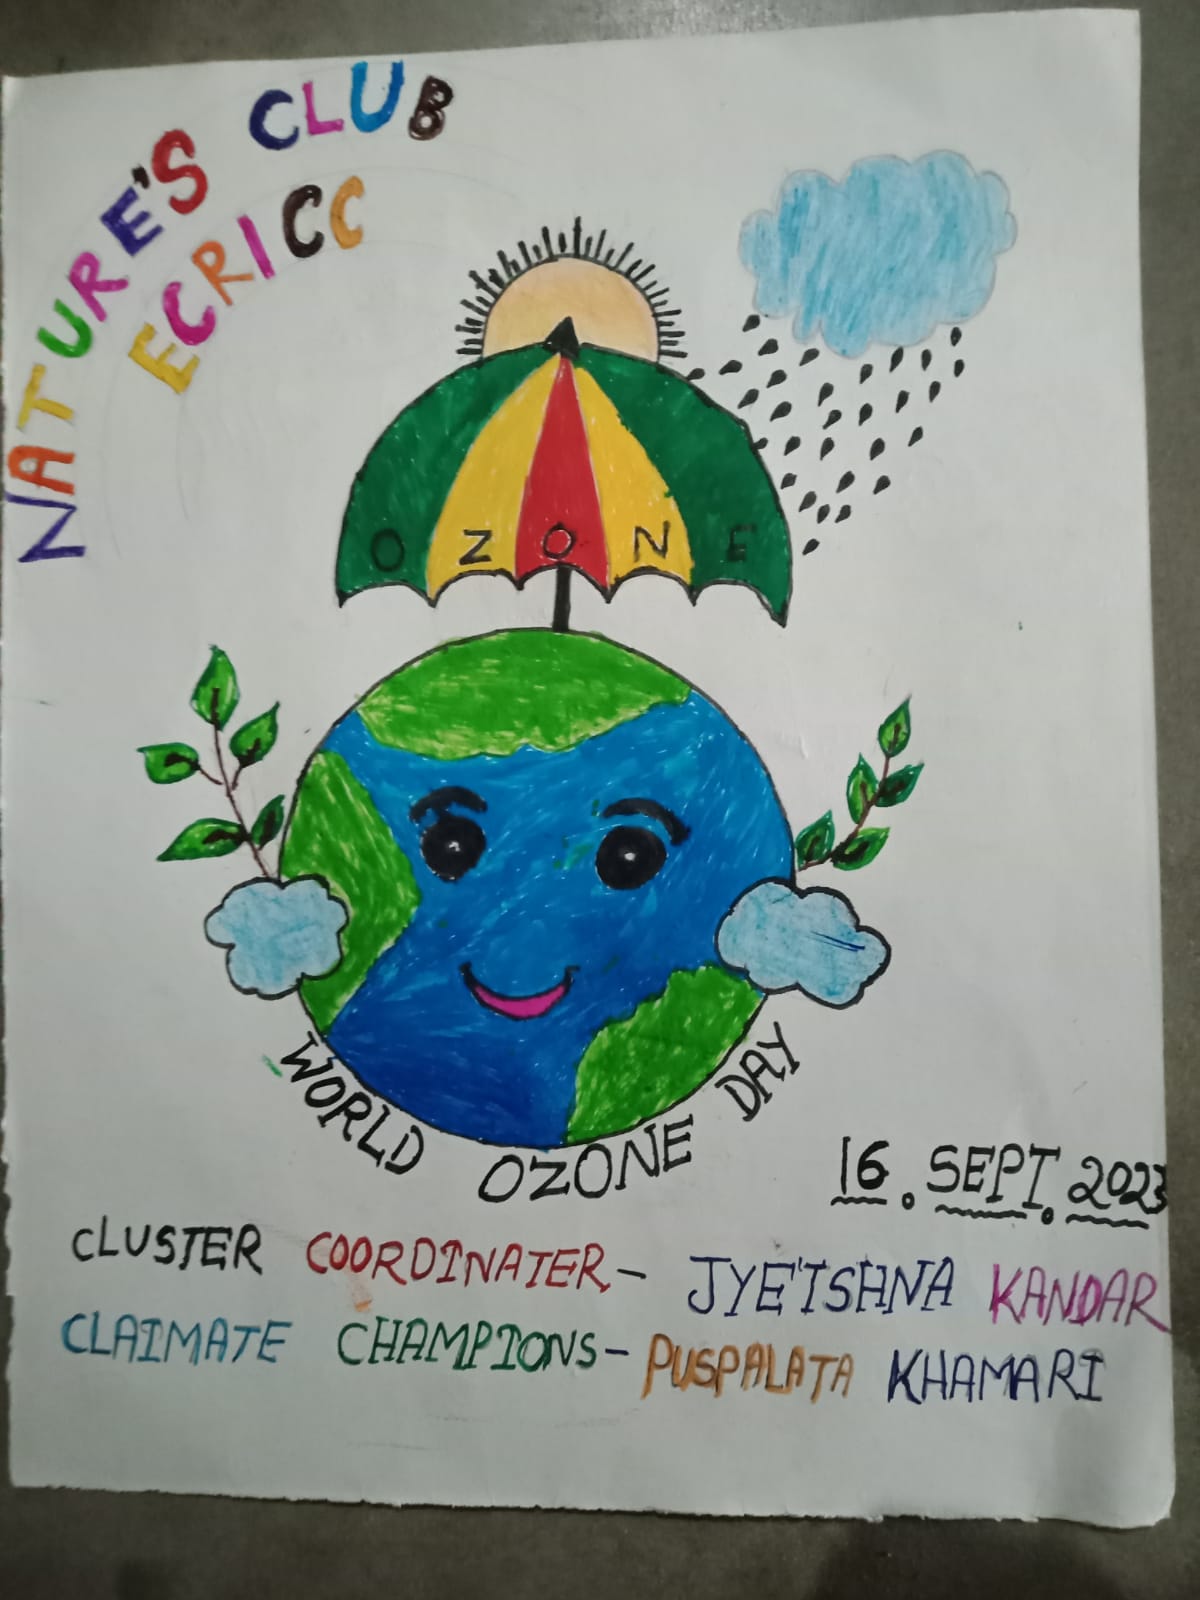 NATURE'S CLUB
ECRICC
OZONE
WORLD OZONE DAY
16. SEPT. 2023
CLUSTER COORDINATER- JYE'TSHNA KANDAR
CLAIMATE CHAMPIONS- PUSPALATA KHAMARI